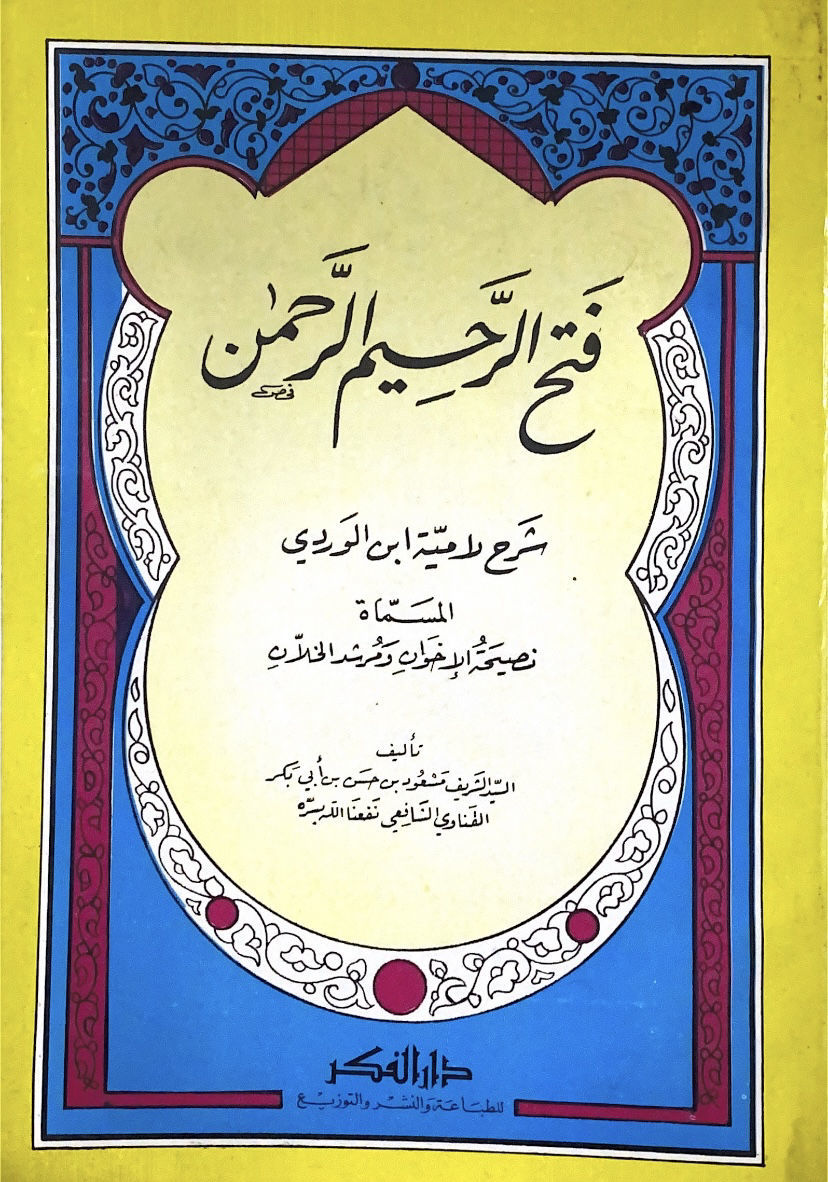 فَتح الرَّحيم الرَّحمٰن
شَرح لاميّة ابن الوَردي
المسَمّاة
نصيحَةُ الإخوَانِ وَمُرشد الخلّانِ
تأليف
السيّد الشريف مَسْعُود بن حسَن بن أبي بَكر
القناوي الشافِعي نَفعنَا الله بسرّه
دار الفكر
للطبَاعَة وَالنشْر وَالتوزيْع